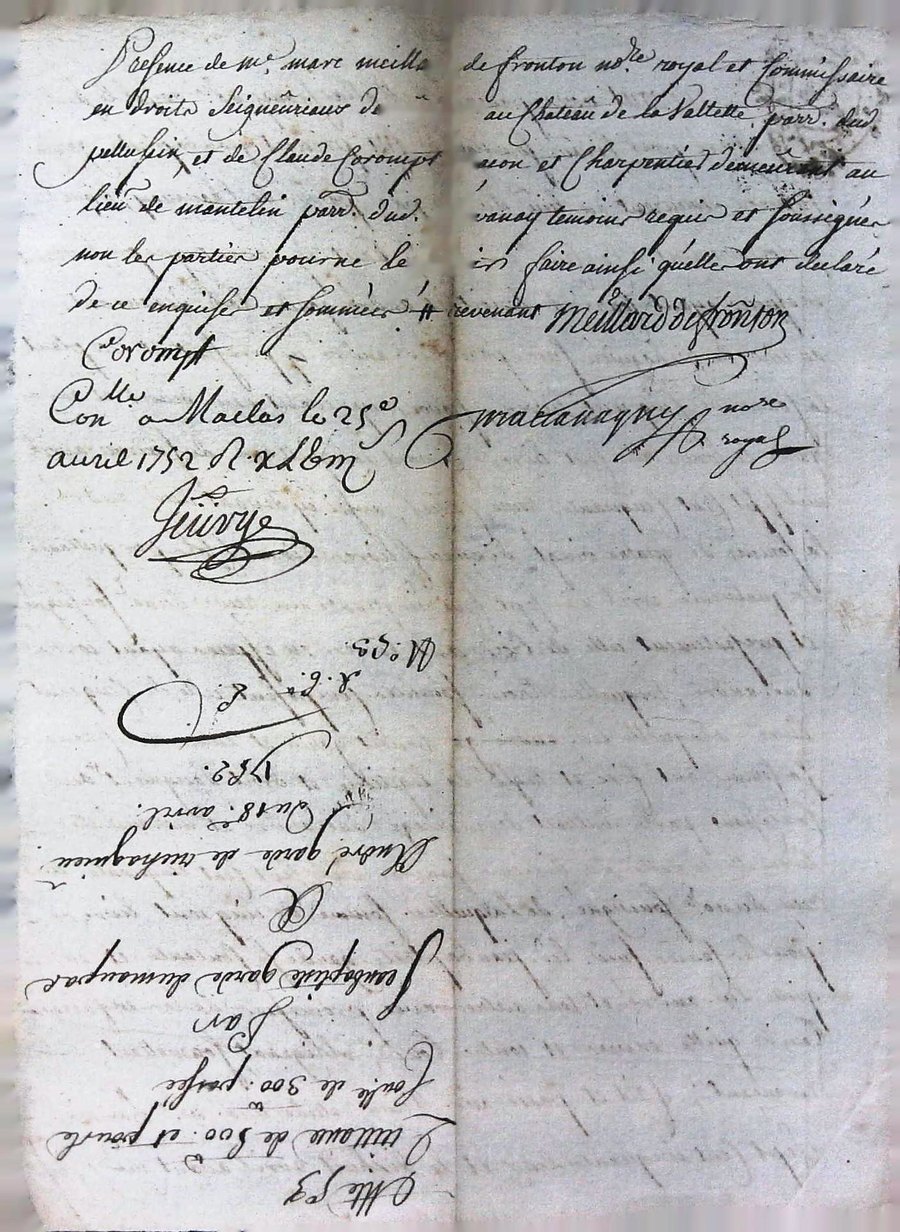 présence de me. marc meilla de fronton nore royal et Commissaire
en droits Seigneuriaux de au Chateau de la Valette parr. dud.
pellusin, et de Claude Corompt con et Charpentier demeurant au
lieu de mantelin parr. dud. vanay temoins requis et soussignés
non les parties pour ne le ir faire ainsi qu'elles ont declaré
de ce enquises et sommées revenant Meillard de fronton
Corompt
Conlle a Maclas le 25e
avril 1752 R x
nore
royal
N.° 93.
1752.
Du 18e. avril.
André garde de
A
Jean baptiste garde dumaupas
Par
Coulle de 300 passée
Quittance de 800 et pour le
Cotte 93